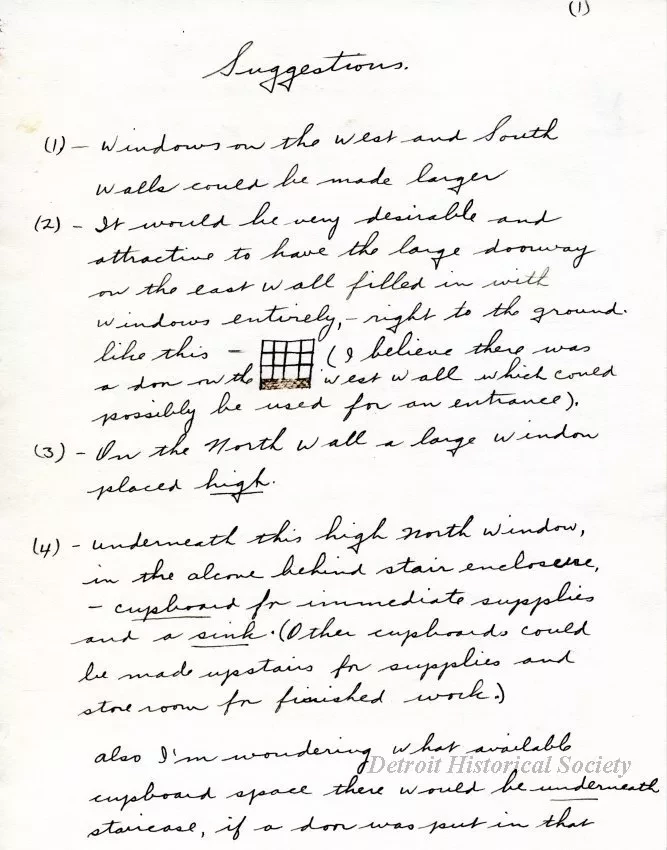 (1)
Suggestions.
(1) - Windows on the West and South
walls could be made larger
(2) - It would be very desirable and
attractive to have the large doorway
on the east wall filled in with
windows entirely, - right to the ground.
like this - (I believe there was
a door on the west wall which could
possibly be used for an entrance).
(3) - On the North wall a large window
placed high.
(4) - underneath this high north window,
in the alcove behind stair enclosure,
- cupboard for immediate supplies
and a sink. (Other cupboards could
be made upstairs for supplies and
store room for finished work.)
also I'm wondering what available
Detroit Historical Society
cupboard space there would be underneath
staircase, if a door was put in that